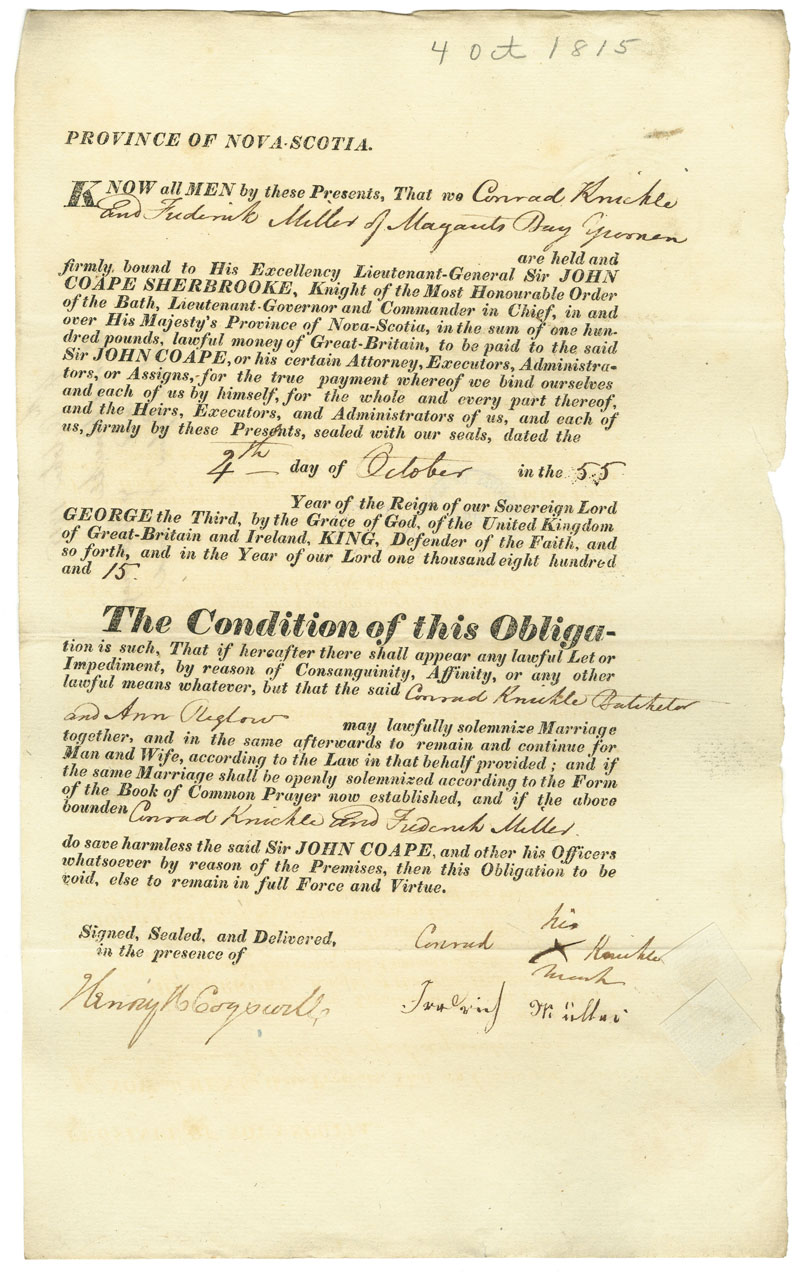 4 Oct 1815
PROVINCE OF NOVA-SCOTIA.
KNOW all MEN by these Presents, That we Conrad Knickle
and Frederick Miller of Magants Bay Yeomen
are held and
firmly bound to His Excellency Lieutenant-General Sir JOHN
COAPE SHERBROOKE, Knight of the Most Honourable Order
of the Bath, Lieutenant-Governor and Commander in Chief, in and
over His Majesty's Province of Nova-Scotia, in the sum of one hun-
dred pounds, lawful money of Great-Britain, to be paid to the said
Sir JOHN COAPE, or his certain Attorney, Executors, Administra-
tors, or Assigns, for the true payment whereof we bind ourselves
and each of us by himself, for the whole and every part thereof,
and the Heirs, Executors, and Administrators of us, and each of
us, firmly by these Presents, sealed with our seals, dated the
4th day of October in the 55
Year of the Reign of our Sovereign Lord
GEORGE the Third, by the Grace of God, of the United Kingdom
of Great-Britain and Ireland, KING, Defender of the Faith, and
so forth, and in the Year of our Lord one thousand eight hundred
and 15.
The Condition of this Obliga-
tion is such, That if hereafter there shall appear any lawful Let or
Impediment, by reason of Consanguinity, Affinity, or any other
lawful means whatever, but that the said Conrad Knickle Batchelor
and Ann Reglow may lawfully solemnize Marriage
together, and in the same afterwards to remain and continue for
Man and Wife, according to the Law in that behalf provided; and if
the same Marriage shall be openly solemnized according to the Form
of the Book of Common Prayer now established, and if the above
bounden Conrad Knickle and Frederick Miller.
do save harmless the said Sir JOHN COAPE, and other his Officers
whatsoever by reason of the Premises, then this Obligation to be
void, else to remain in full Force and Virtue.
Signed, Sealed, and Delivered,
in the presence of
his
Conrad X Knickle
mark
Henry H Cogswell
Friedrich Müller